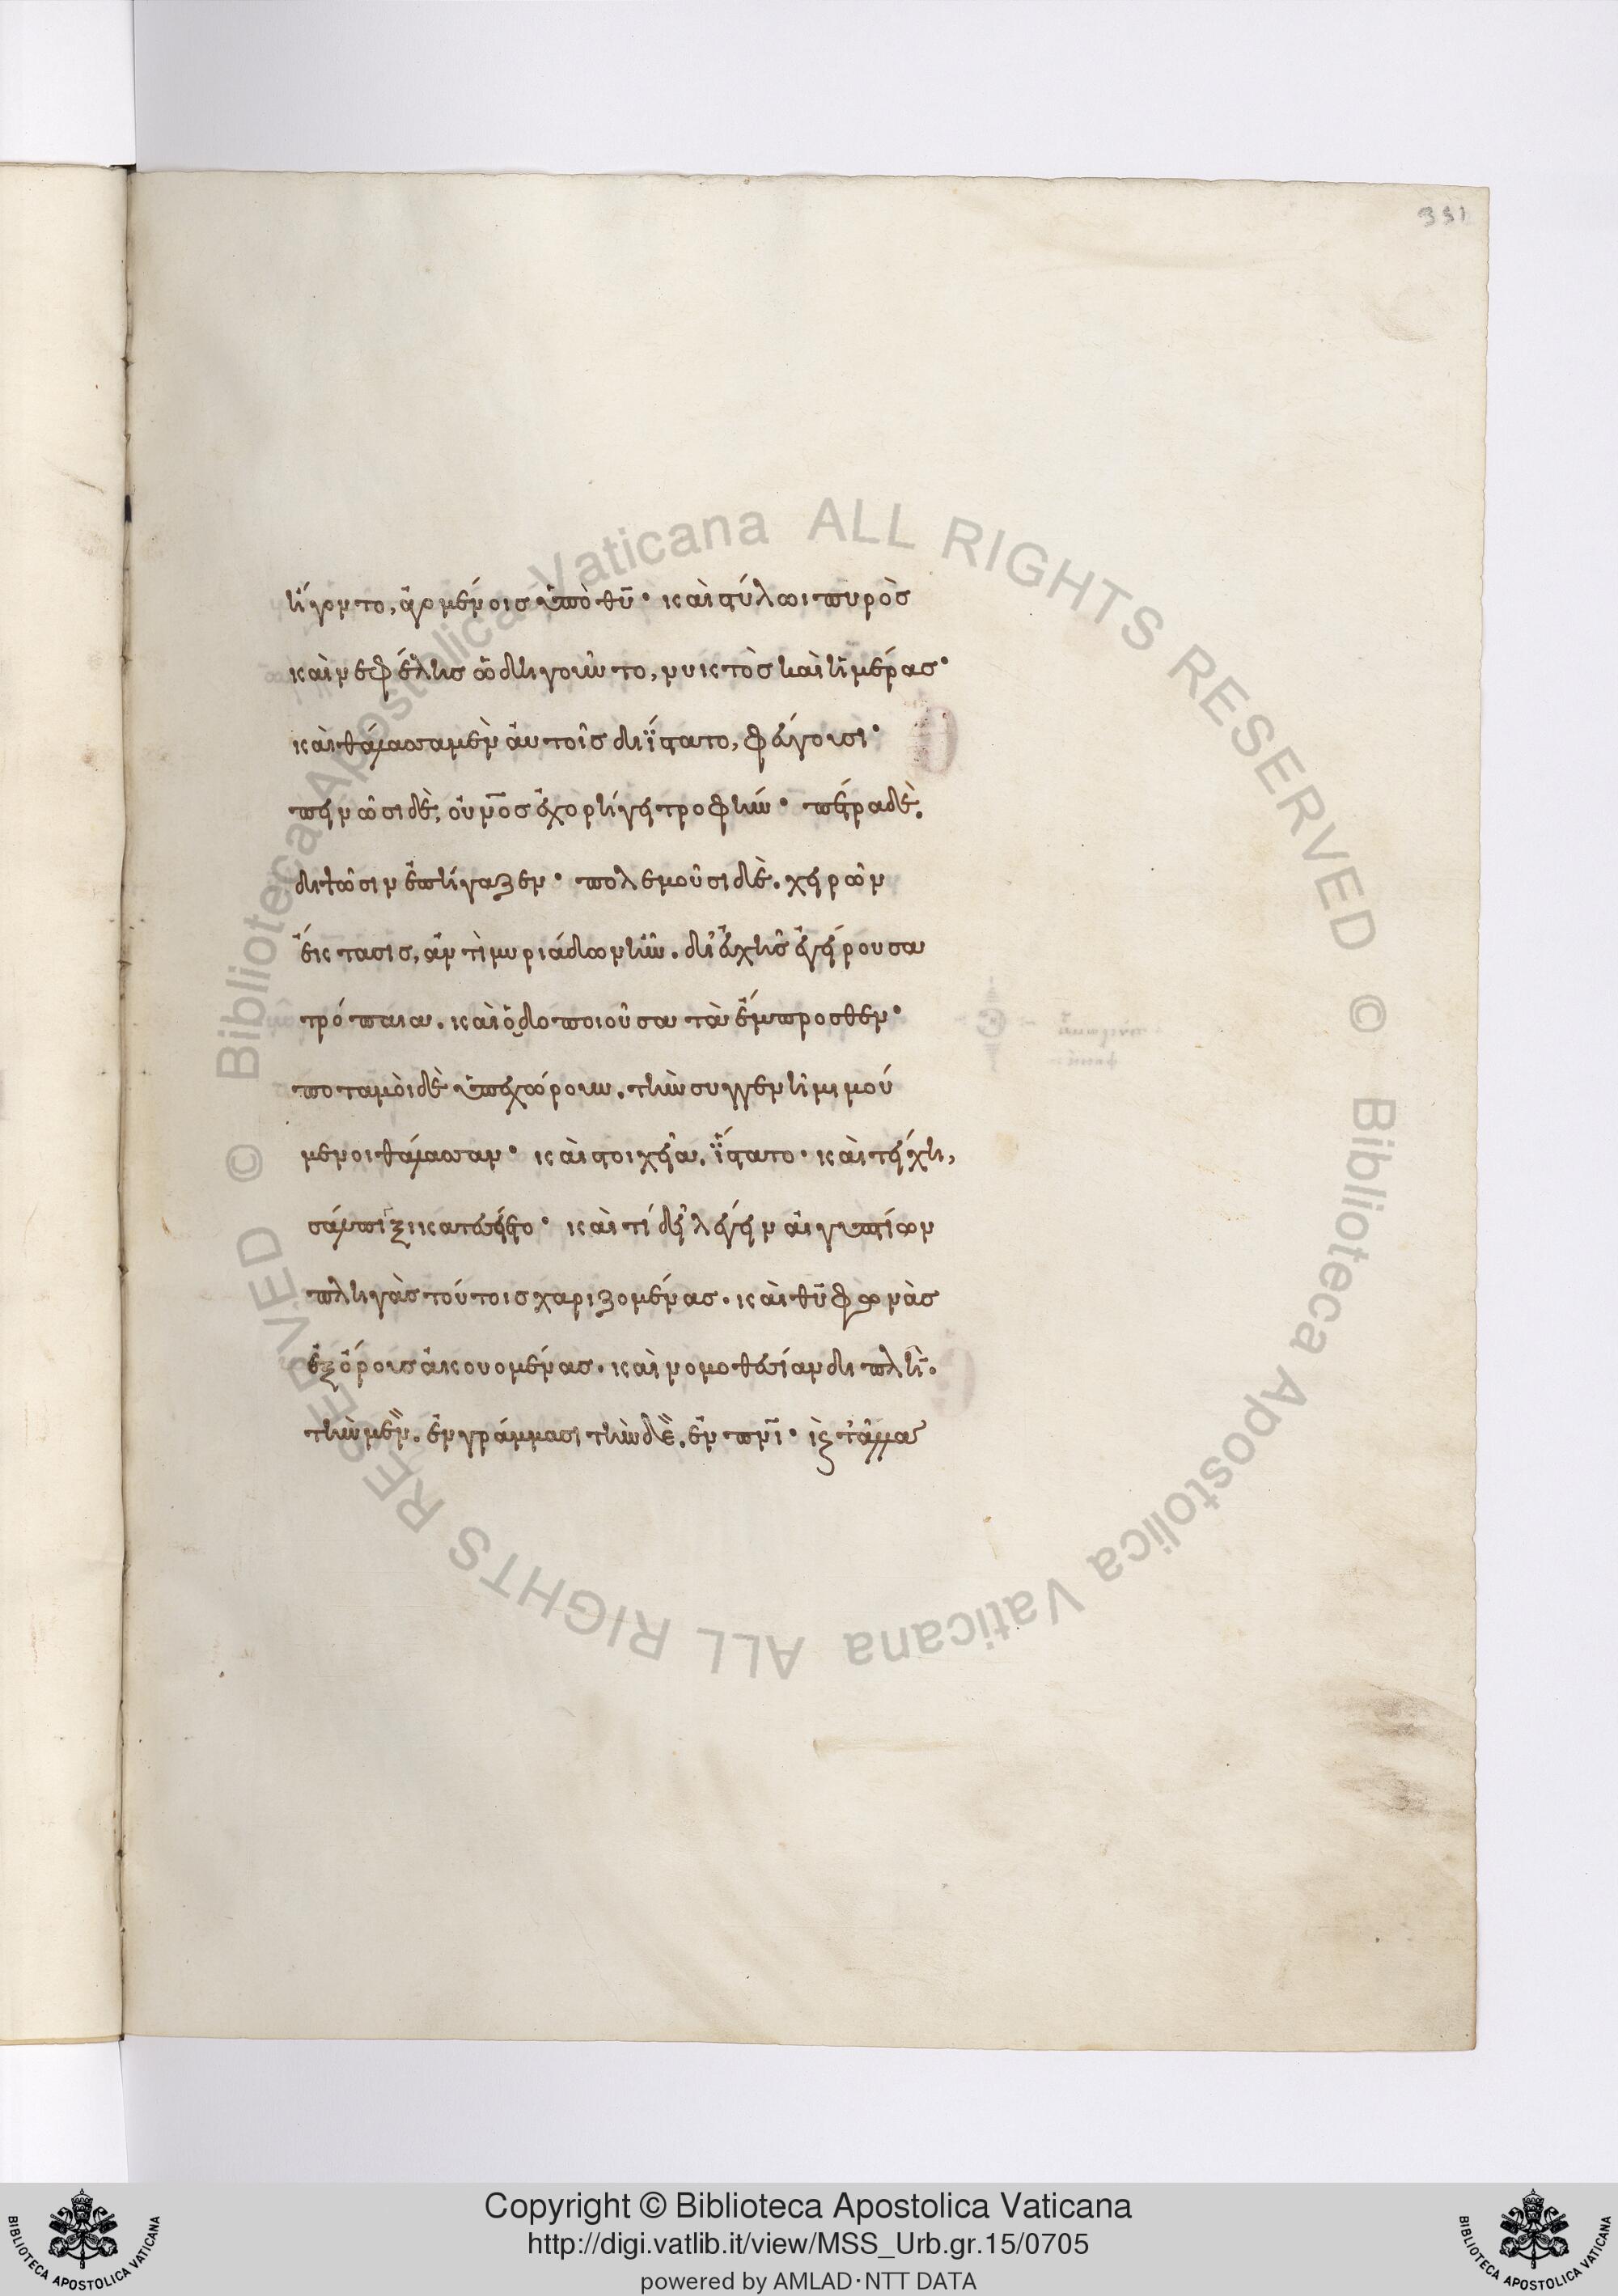 331
ήγοντο, ἀγομένοις ὑπὸ θῡ· καὶ στύλωι πυρὸς
καὶ νεφέλης ὡδηγοῦντο, νυκτὸς καὶ ἡμέρας·
καὶ θάλασσα μὲν αὐτοῖς διΐστατο, φεύγουσι·
πεινῶσι δὲ, οὐνος ἐχορήγει τροφήν· πέτρα δὲ,
διψῶσιν ἐπήγαζεν· πολεμοῦσι δὲ, χειρῶν
ἔκτασις, ἀντὶ μυριάδων ἦν, δι' εὐχῆς ἐγείρουσα
τρόπαια, καὶ ὁδοποιοῦσα τὰ ἔμπροσθεν·
ποταμοὶ δὲ ὑπεχώρουν, τὴν συγγενῆ μιμού
μενοι θάλασσαν· καὶ στοιχεῖα, ἵστατο· καὶ τείχη,
σάλπιγξι κατεσείετο· καὶ τί δεῖ λέγειν αἰγυπτίων
πληγὰς τούτοις χαριζομένας, καὶ θῡ φωνὰς
ἐξ ὄρους ἀκουομένας, καὶ νομοθεσίαν διπλῆν,
τὴν μὲν, ἐν γράμμασι τὴν δὲ, ἐν πνι· καὶ τἄλλα
Copyright © Biblioteca Apostolica Vaticana
http://digi.vatlib.it/view/MSS_Urb.gr.15/0705
powered by AMLAD·NTT DATA
BIBLIOTECA APOSTOLICA VATICANA
BIBLIOTECA APOSTOLICA VATICANA
© Biblioteca Apostolica Vaticana ALL RIGHTS RESERVED © Biblioteca Apostolica Vaticana ALL RIGHTS RESERVED